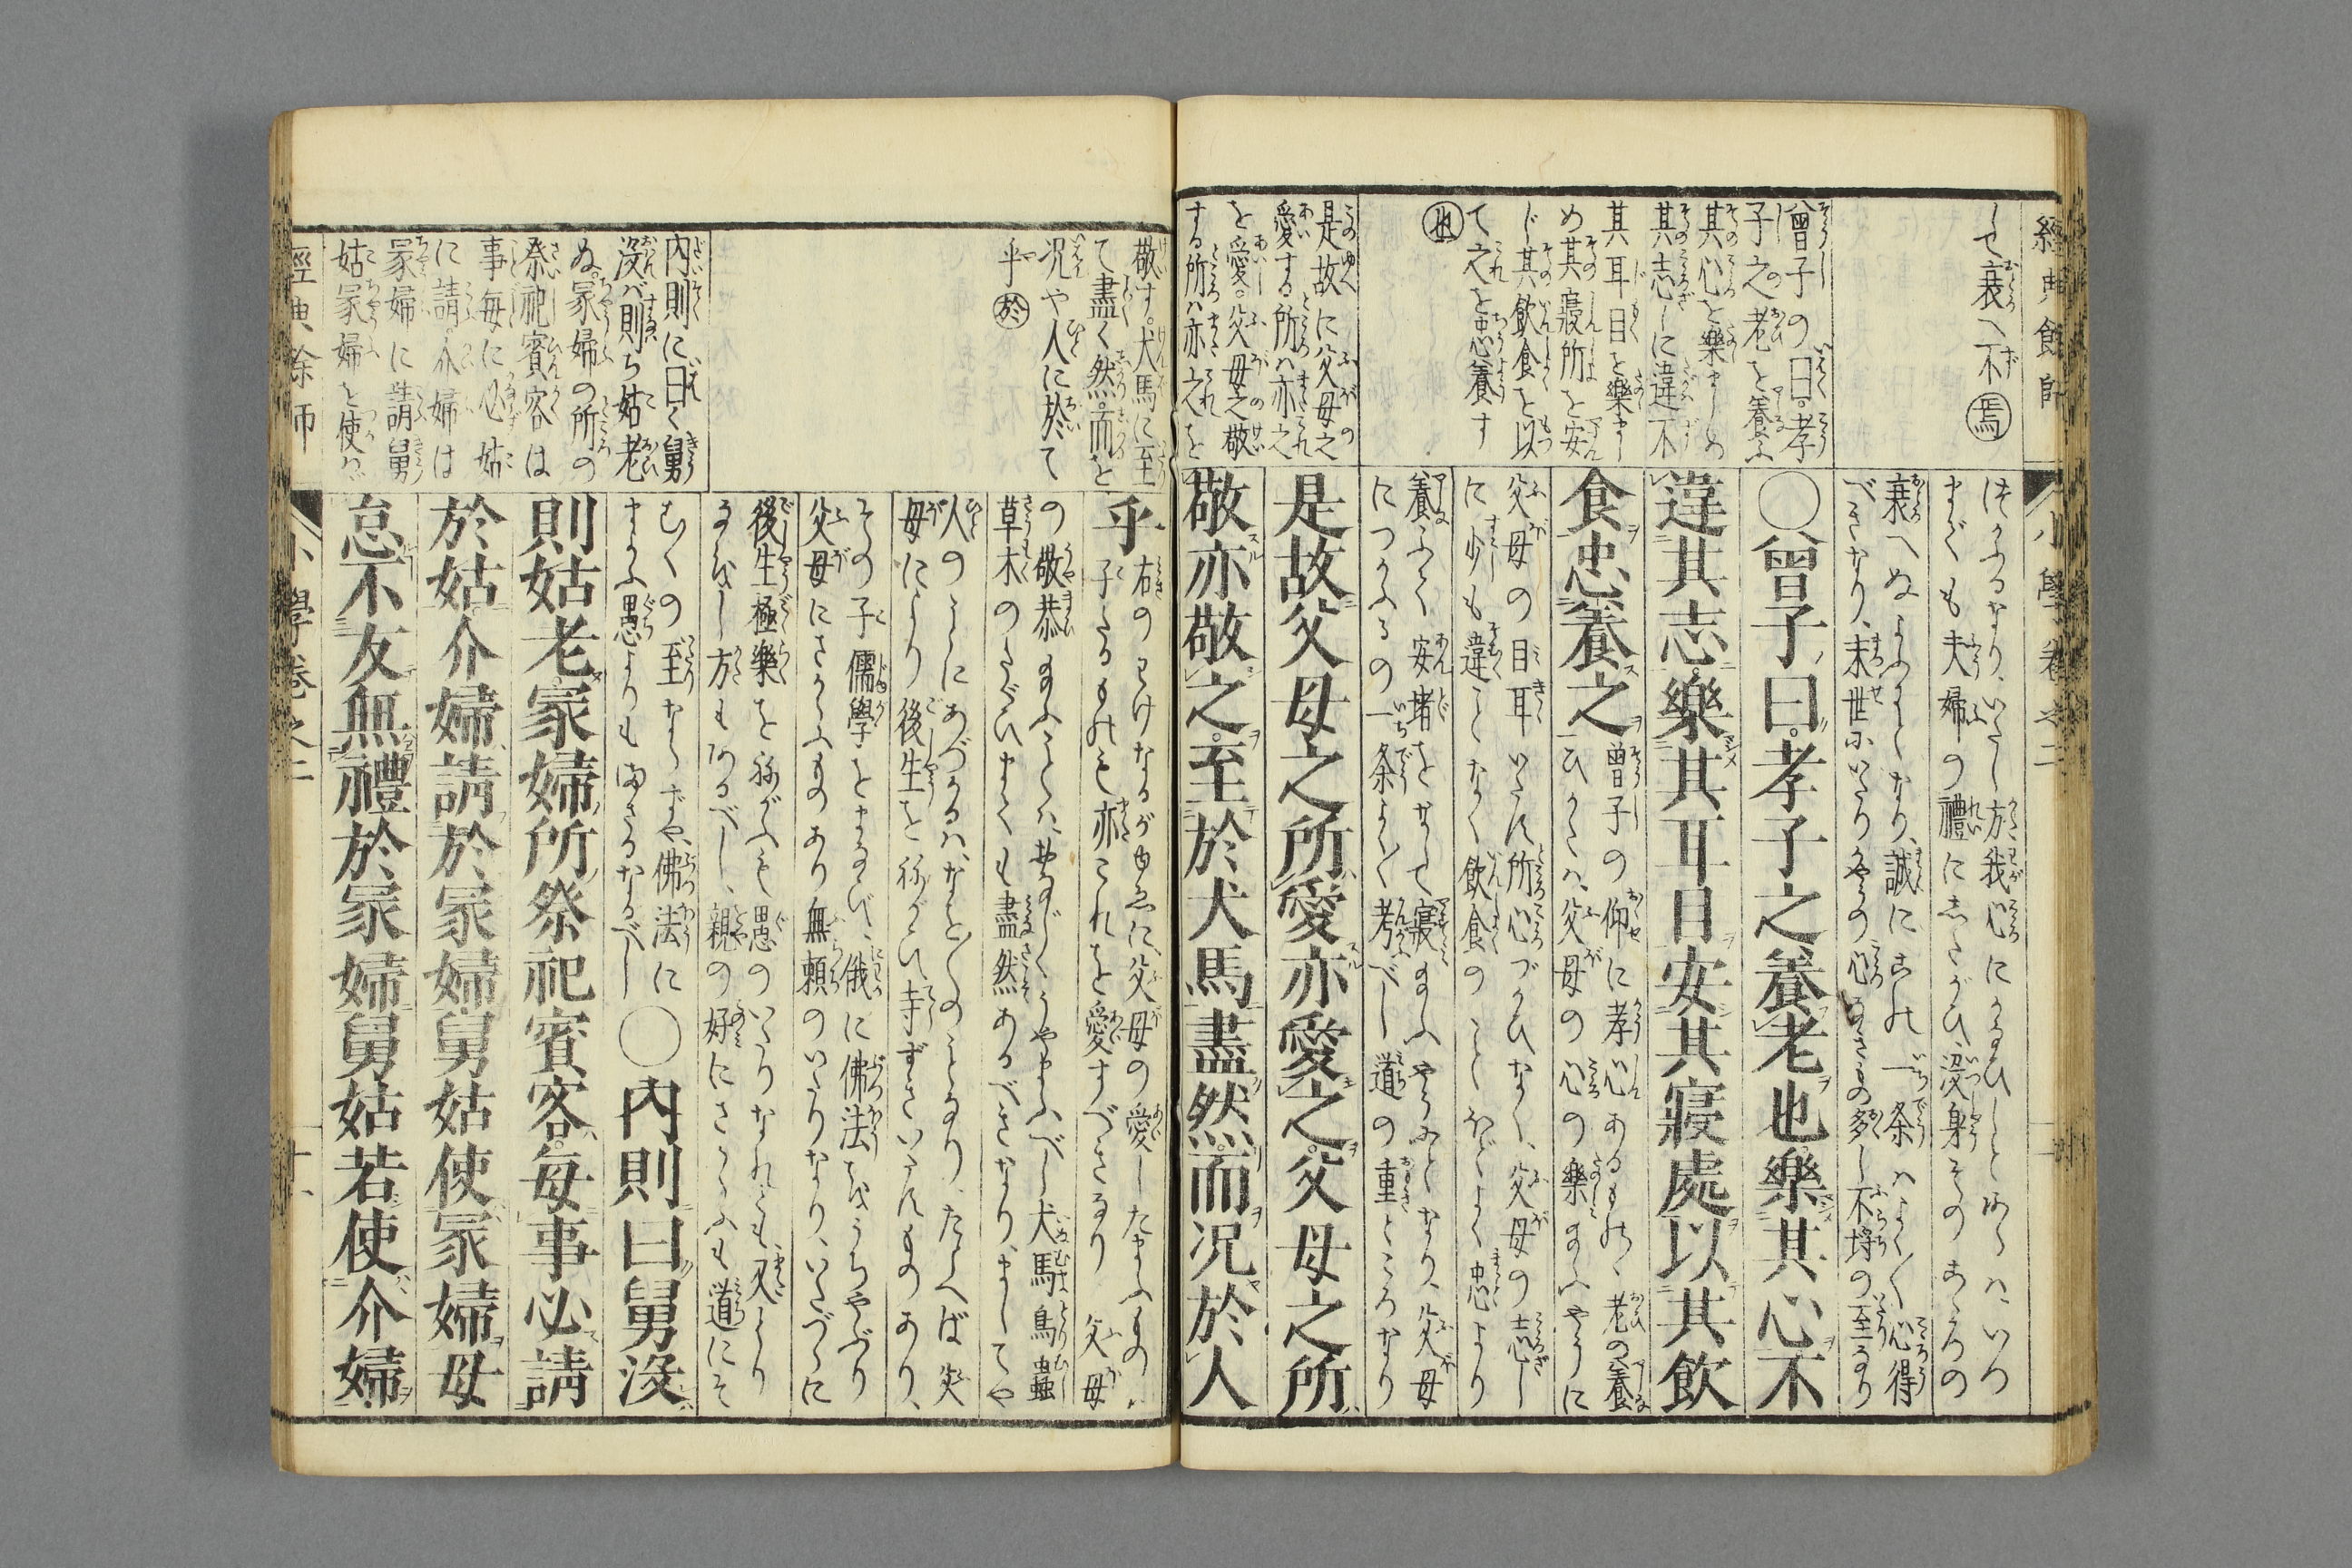 經典餘師
小學卷之二
して衰へ不焉
曾子の曰。孝
子之老を養ふ
其心を樂ましめ
其志しに違不
其耳目を樂まし
め其寢所を安
じ其飲食を以
て之を忠養す
也
是故に父母之
愛する所ハ亦之
を愛。父母之敬
する所ハ亦之を
まくも夫婦の禮にしたがひ、没身そのこゝろの
〇曾子曰。孝子之養老也樂其心不
違其志。樂其耳目安其寢處以其飲
食忠養之
曾子の仰に孝心あるものゝ老の養
ひかたハ、父母の心の樂まふやうに
父母の目耳いたる所心づかひなく、父母の志し
に少も違ことなく飲食のことほどよく忠より
養ふて安堵をせして寢まふやうにとなり、父母
につかふるの一条よく〳〵考べし道の重ところなり
是故父母之所愛亦愛之。父母之所
敬亦敬之。至於犬馬盡然。而況於人
敬す。犬馬に至
て盡く然。而を
況や人に於て
乎於
內則に曰く舅
没バ則ち姑老
ぬ。冢婦の所の
祭祀賓客は
事毎に必姑
に請。介婦は
冢婦に請舅
姑冢婦を使バ
乎
右のわけなるがゆゑに、父母の愛したまふもの
子たるものも亦これを愛すべきなり 父母
の敬恭まふことハ、おなじくうやまふべし犬馬鳥蟲
草木のたぐひまても盡然あるべきなり、ましてや
母により後生を祢がひ、寺ずきいたすものあり、
その子儒學をまなび、俄に佛法をうちやぶり
父母にさからふものあり無頼のいたりなり、いたづらに
後生極樂を祢がふも愚のいたりなれども、又とり
なほし方もあるべし、親の好にさからふも道にそ
むくの至ならずや、佛法に
まよふ愚よりもまさるなるべし
〇內則曰舅没
則姑老。冢婦所祭祀賓客。毎事必請
於姑介婦請於冢婦。舅姑使冢婦毋
怠不友無禮於冢婦舅姑若使介婦
經典餘師
小學卷之二
十